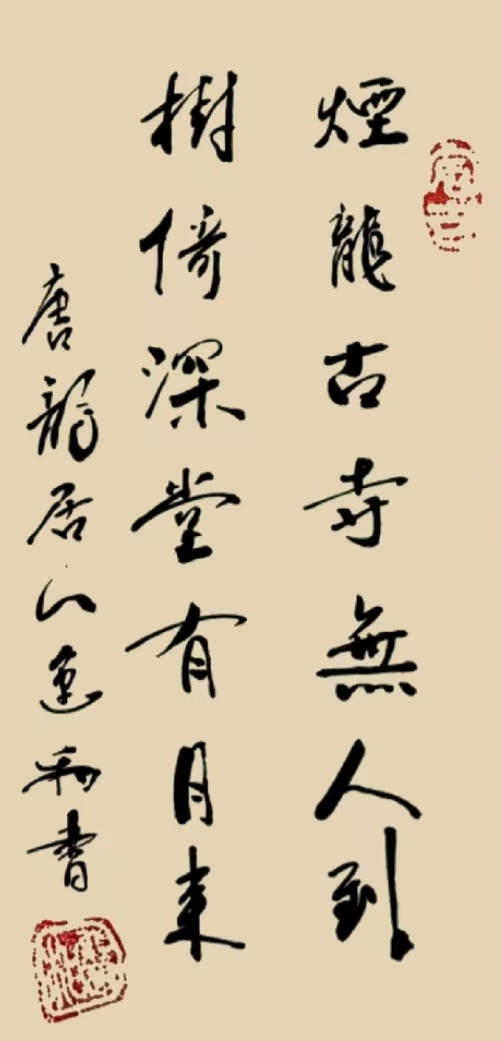 煙龍古寺無人到
樹倚深堂有月來
唐龍居山遠利書